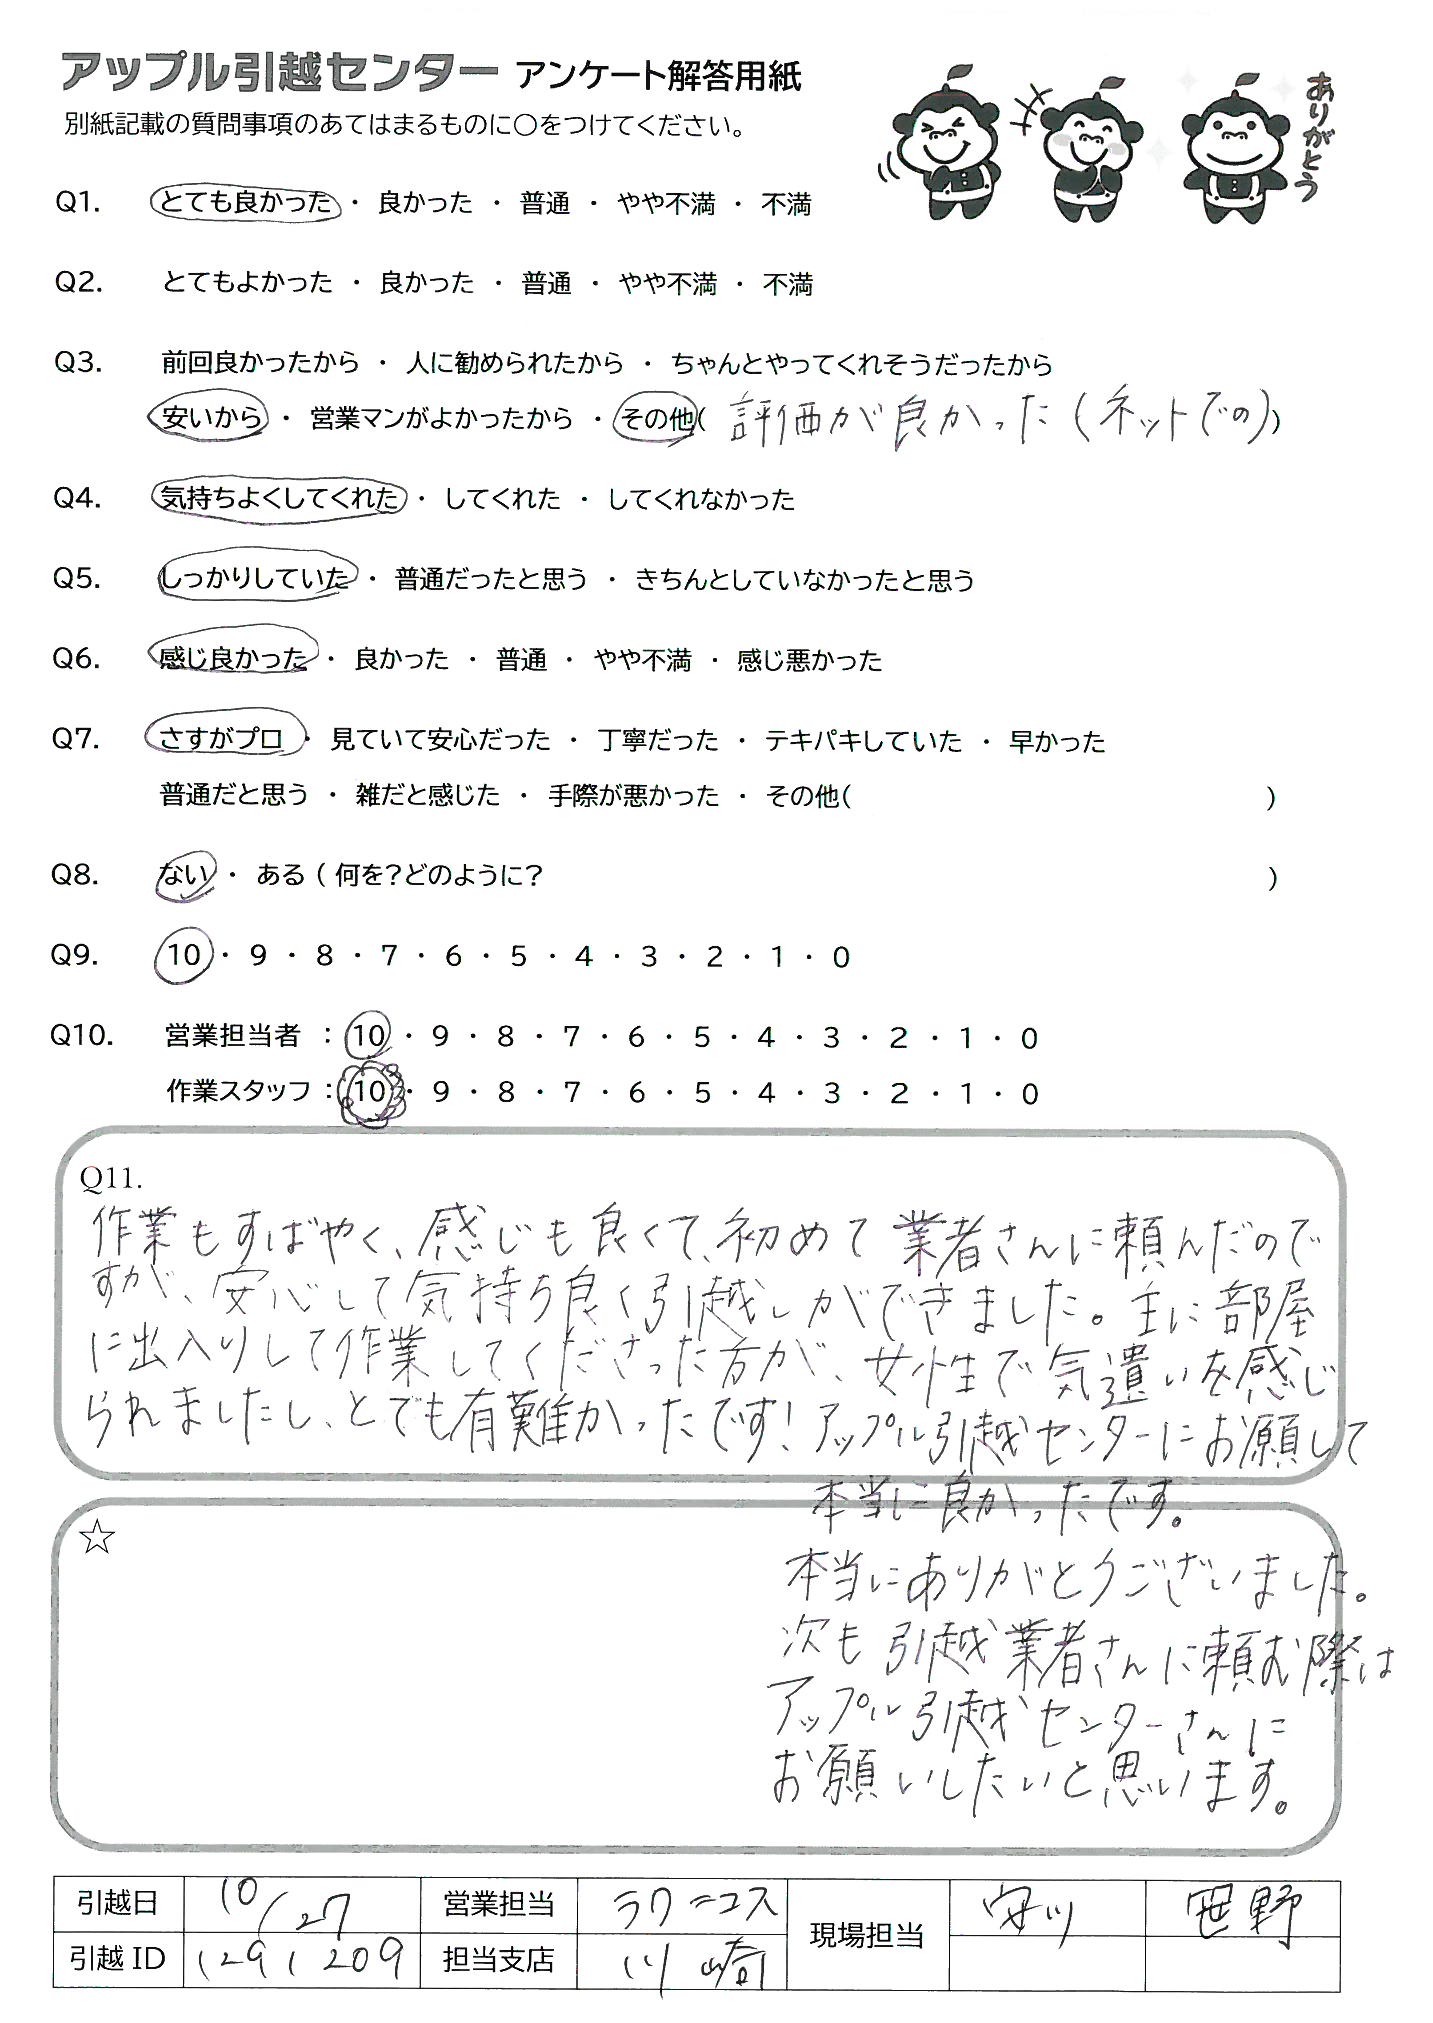 アップル引越センター アンケート解答用紙
別紙記載の質問事項のあてはまるものに〇をつけてください。
ありがとう
Q1. とても良かった ・ 良かった ・ 普通 ・ やや不満 ・ 不満
Q2. とてもよかった ・ 良かった ・ 普通 ・ やや不満 ・ 不満
Q3. 前回良かったから ・ 人に勧められたから ・ ちゃんとやってくれそうだったから
安いから ・ 営業マンがよかったから ・ その他( 評価が良かった(ネットでの) )
Q4. 気持ちよくしてくれた ・ してくれた ・ してくれなかった
Q5. しっかりしていた ・ 普通だったと思う ・ きちんとしていなかったと思う
Q6. 感じ良かった ・ 良かった ・ 普通 ・ やや不満 ・ 感じ悪かった
Q7. さすがプロ ・ 見ていて安心だった ・ 丁寧だった ・ テキパキしていた ・ 早かった
普通だと思う ・ 雑だと感じた ・ 手際が悪かった ・ その他( )
Q8. ない ・ ある ( 何を?どのように? )
Q9. 10 ・ 9 ・ 8 ・ 7 ・ 6 ・ 5 ・ 4 ・ 3 ・ 2 ・ 1 ・ 0
Q10. 営業担当者 : 10 ・ 9 ・ 8 ・ 7 ・ 6 ・ 5 ・ 4 ・ 3 ・ 2 ・ 1 ・ 0
作業スタッフ : 10 ・ 9 ・ 8 ・ 7 ・ 6 ・ 5 ・ 4 ・ 3 ・ 2 ・ 1 ・ 0
Q11.
作業もすばやく、感じも良くて、初めて業者さんに頼んだので
すが、安心して気持ち良く引越しができました。主に部屋
に出入りして作業してくださった方が、女性で気遣いを感じ
られましたし、とても有難かったです!アップル引越センターにお願して
本当に良かったです。
☆
本当にありがとうございました。
次も引越業者さんに頼む際は
アップル引越センターさんに
お願いしたいと思います。
引越日 10/27 営業担当 ラワニコス 現場担当 安川 笹野
引越ID 1291209 担当支店 川崎